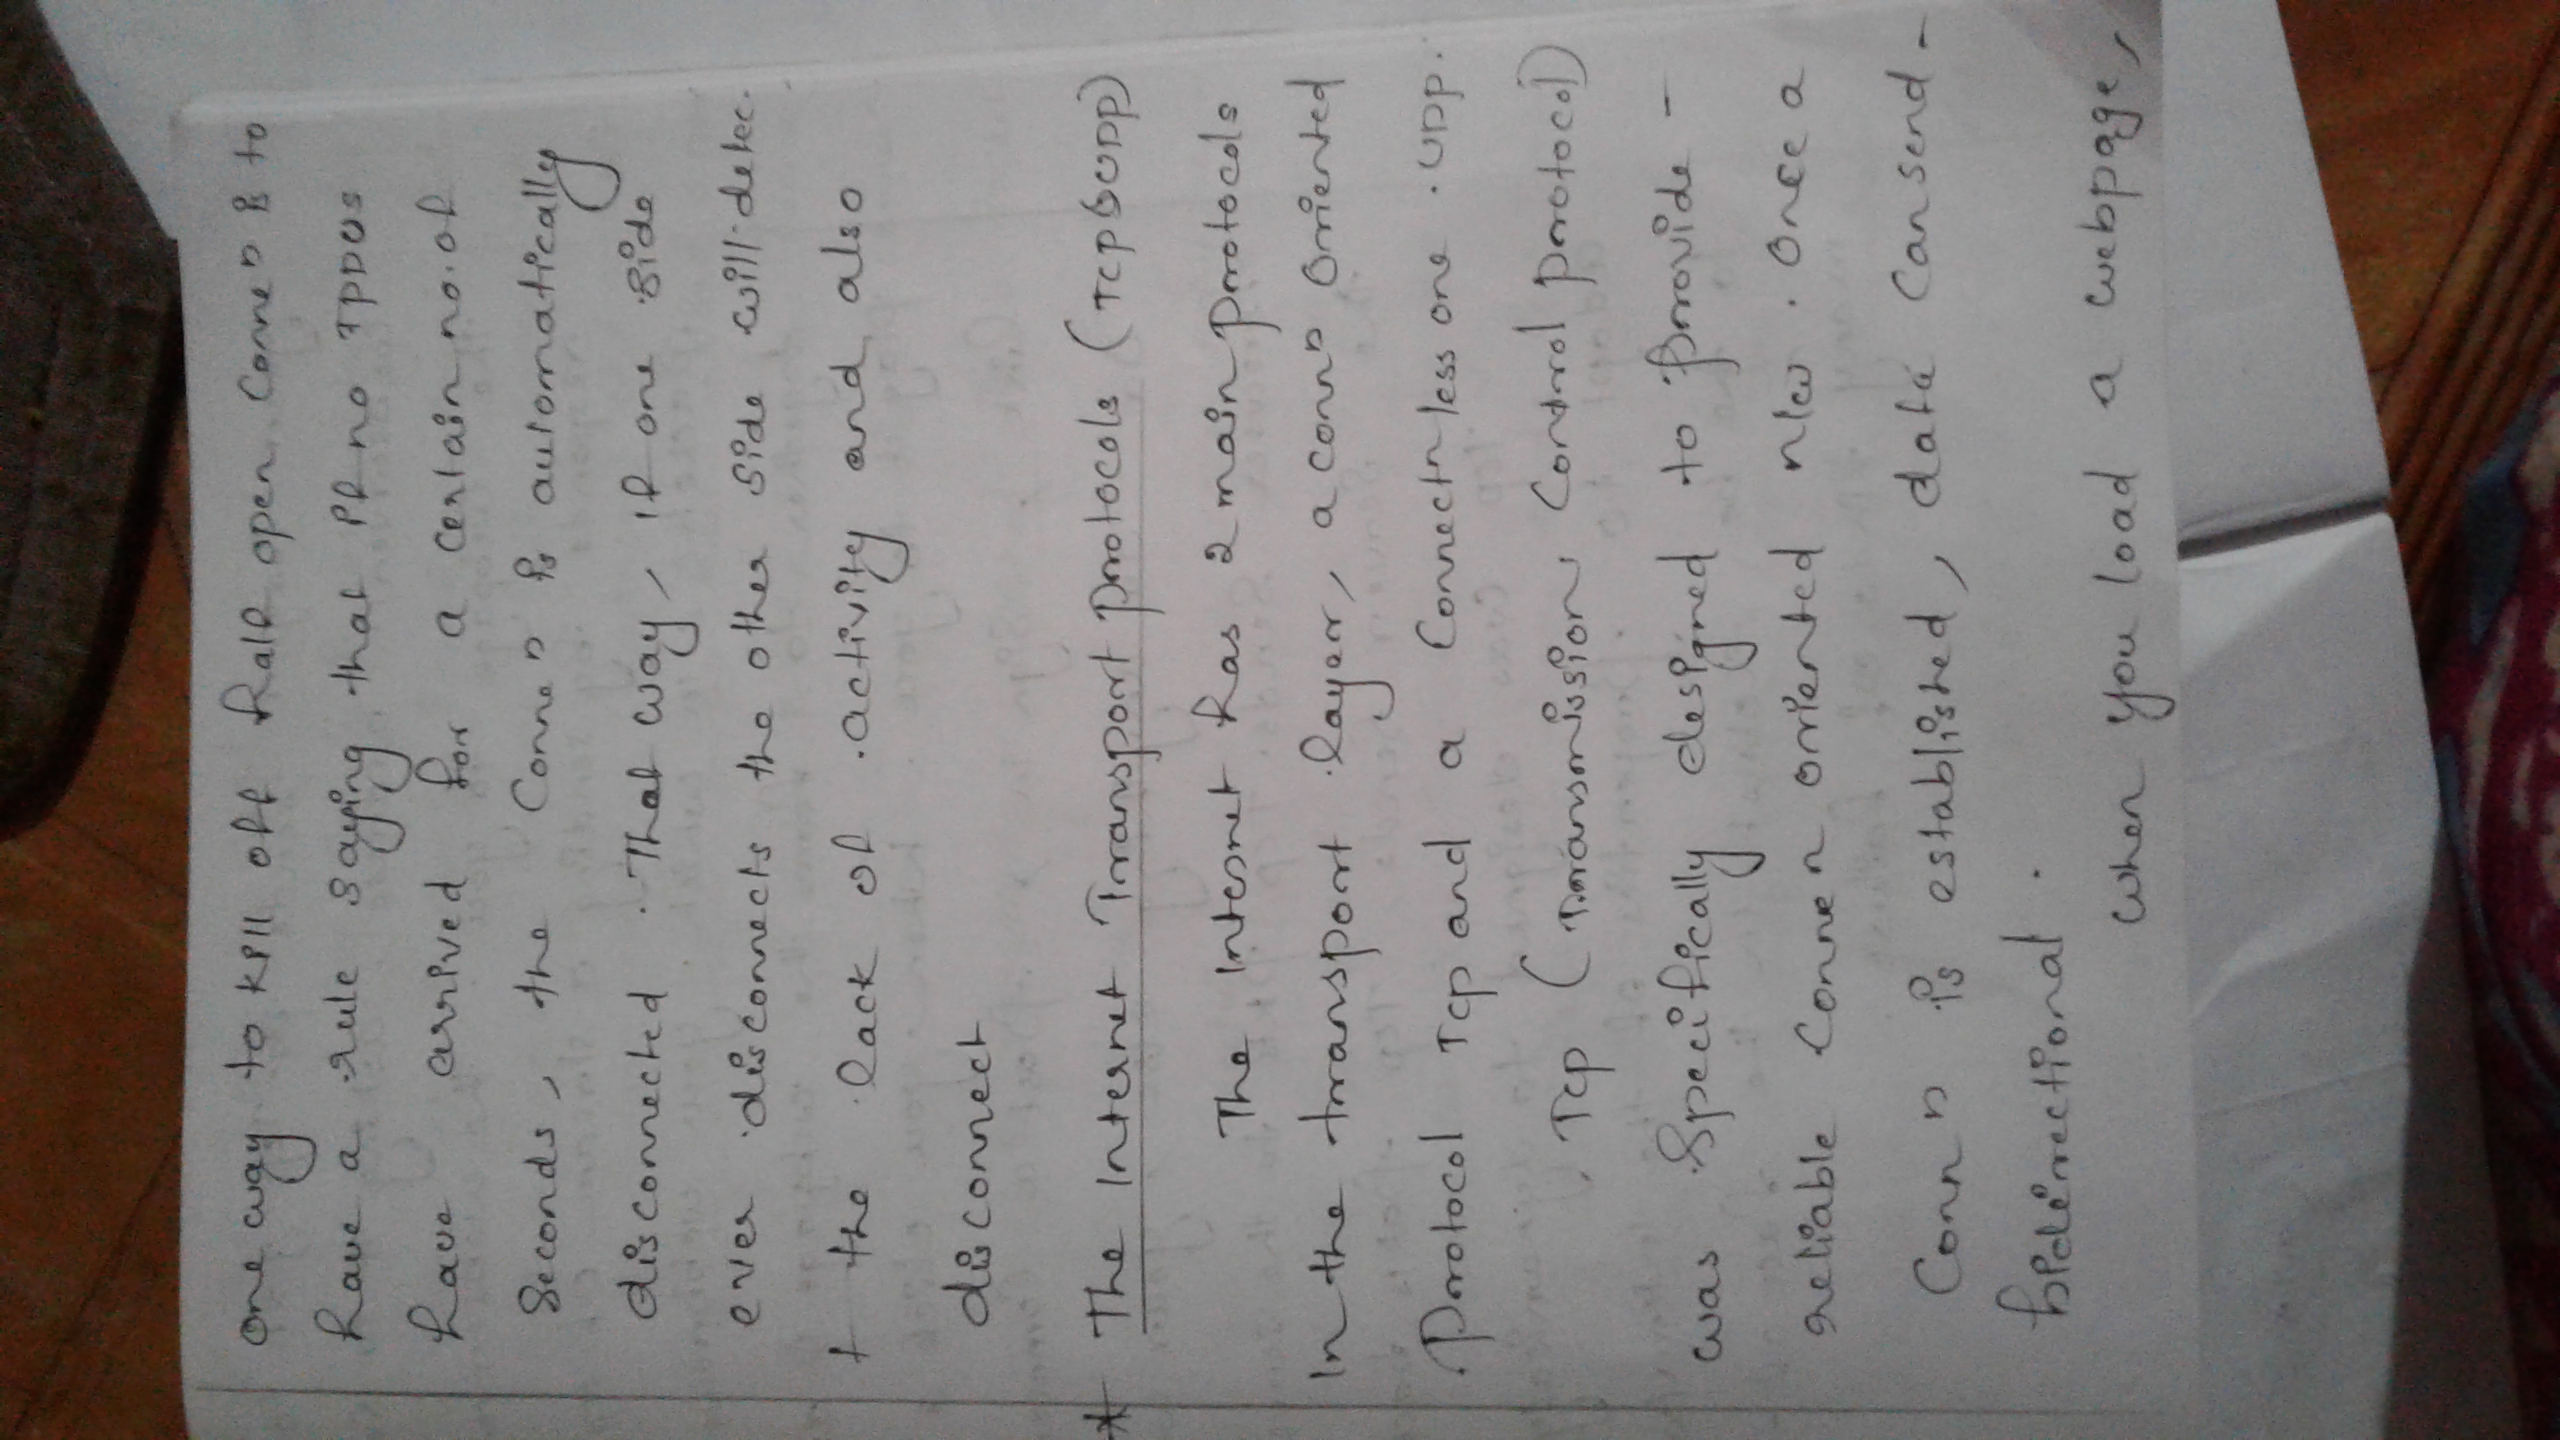 one way to kill off half open Conneⁿ is to
have a rule saying that if no TPDUS
have arrived for a certain no. of
Seconds, the Conneⁿ is automatically
disconnected. That way, if one side
ever disconnects the other side will detec-
t the lack of activity and also
disconnect
* The Internet Transport protocols (TCP & UDP)
The Internet has 2 main protocols
In the transport layer, a connⁿ oriented
protocol TCP and a Connectⁿ less one. UDP.
TCP (Transmission Control protocol)
was Specifically designed to provide -
reliable Connen oriented n/w. Once a
Connⁿ is established, data can send -
bidirectional.
when you load a webpage,